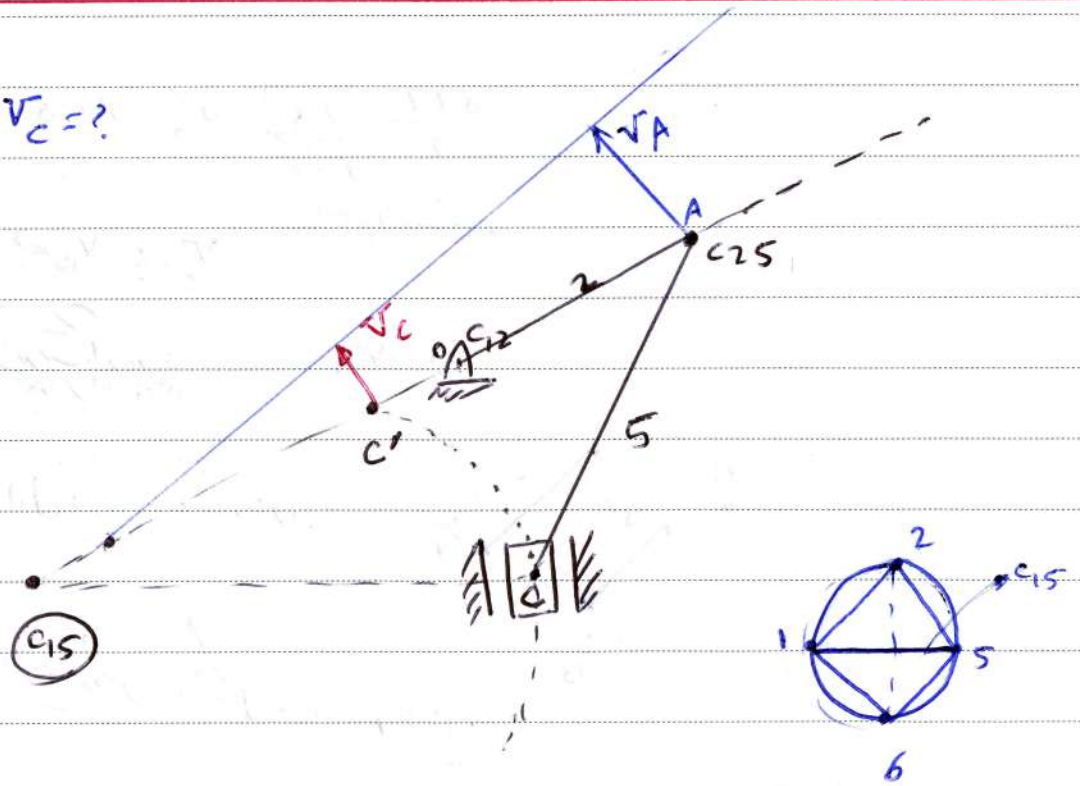 V_C = ?
V_A
A
C25
2
V_C
O
C12
C'
5
C
C15
2
C15
1
5
6